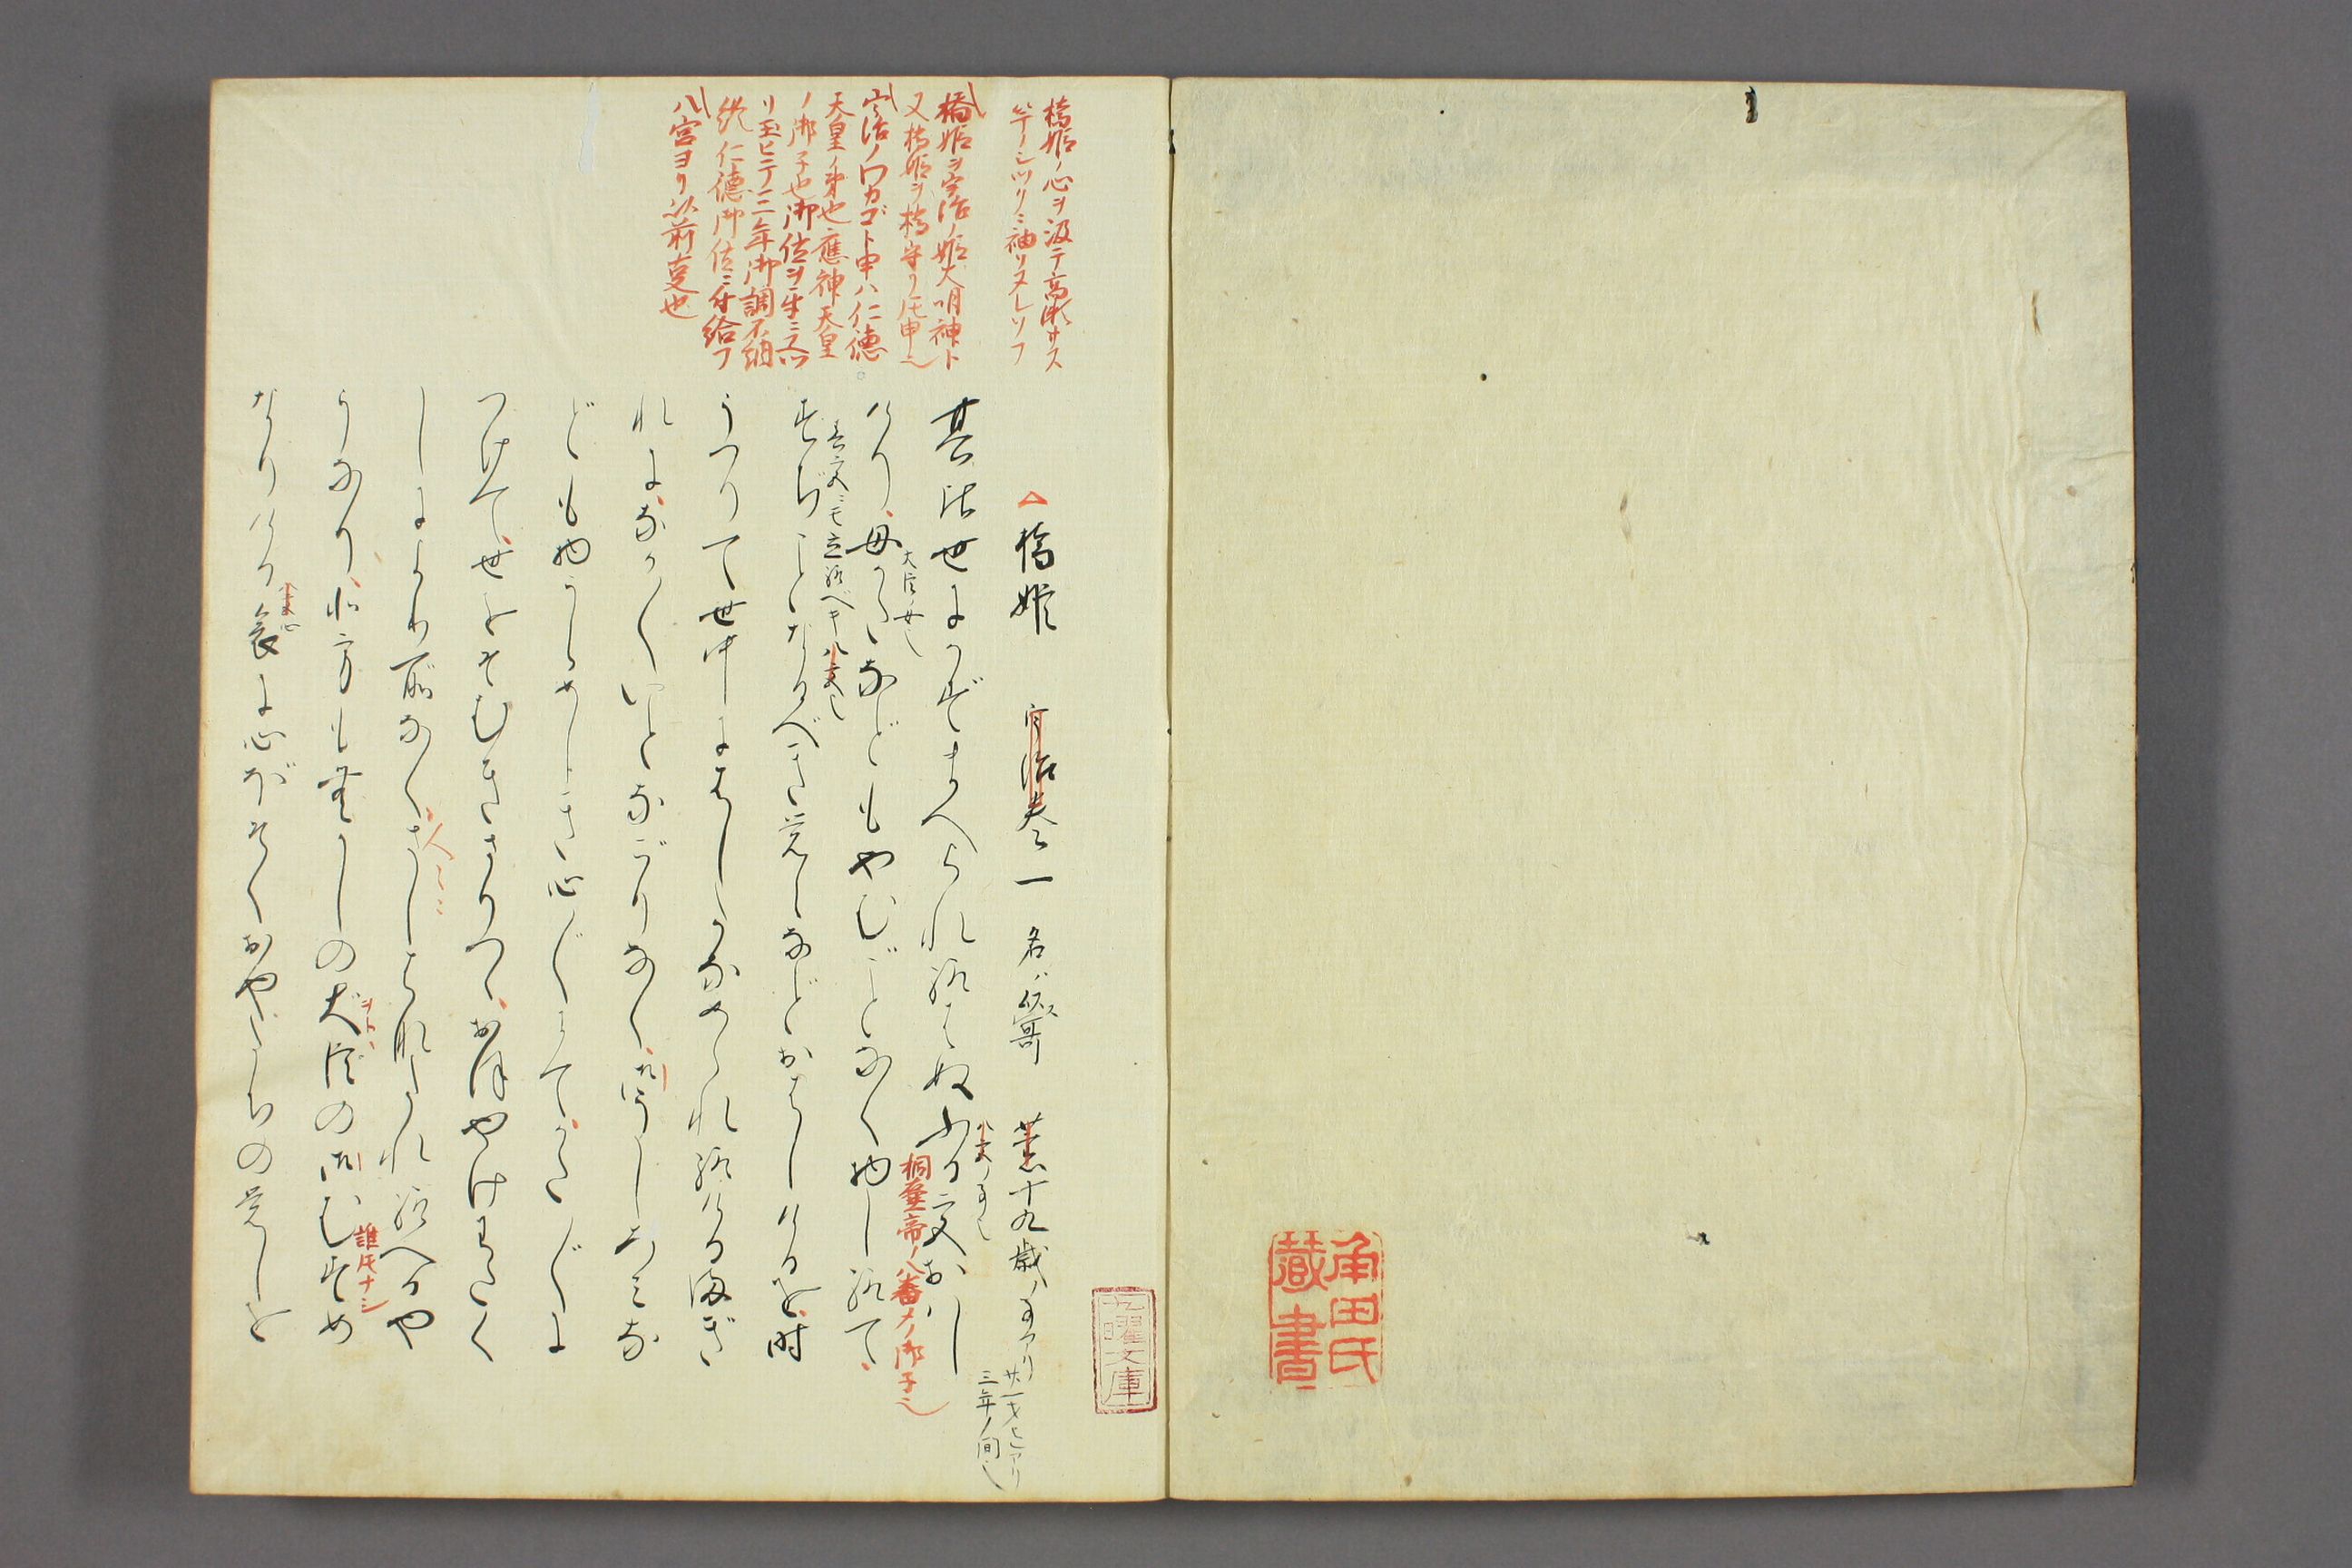 角田氏
蔵書
九曜文庫
橋姫ノ心ヲ汲テ高瀬サス
竿ノシツクニ袖ソヌレヌル
橋姫ヲ宇治ノ姫大明神ト
又橋姫ヲ橋守リ氏申也
宇治ノワカゴト申ハ仁徳
天皇ノ弟也應神天皇
ノ御子也御位ヲ
リ玉ヒテ二三年御調不納
終仁徳御位ニ付給フ
八宮ヨリ以前事也
橋姫 宇治巻一 名ハ以哥 薫十九歳ノ事アリ
廿一才ヒアリ
三年ノ間也
其比世にかずまへられ給はぬふる宮おはし
八宮ノ事也
桐壷帝ノ八番メノ御子也
けり、母かたなどもやむごとなく物し給て、
大臣ノ女也
すぢことなるべき覚えなどおはしけるを、時
春宮ニモ立給ベキ八宮也
うつりて世中にはしたなめられ給ける満ぎ
れに、なか〱いとなごりなく、御うしろみな
ども物うらめしき心〲にて、かた〲に
つけて、世をそむきさりつゝ、おほやけわたく
しにより所なく、さしはなたれ給へるや
人々ニ
うなり、北方も昔しの大臣の御むすめ
ヲトヽ
誰氏ナシ
なりける、哀に心ぼそく、おやたちの覚しを